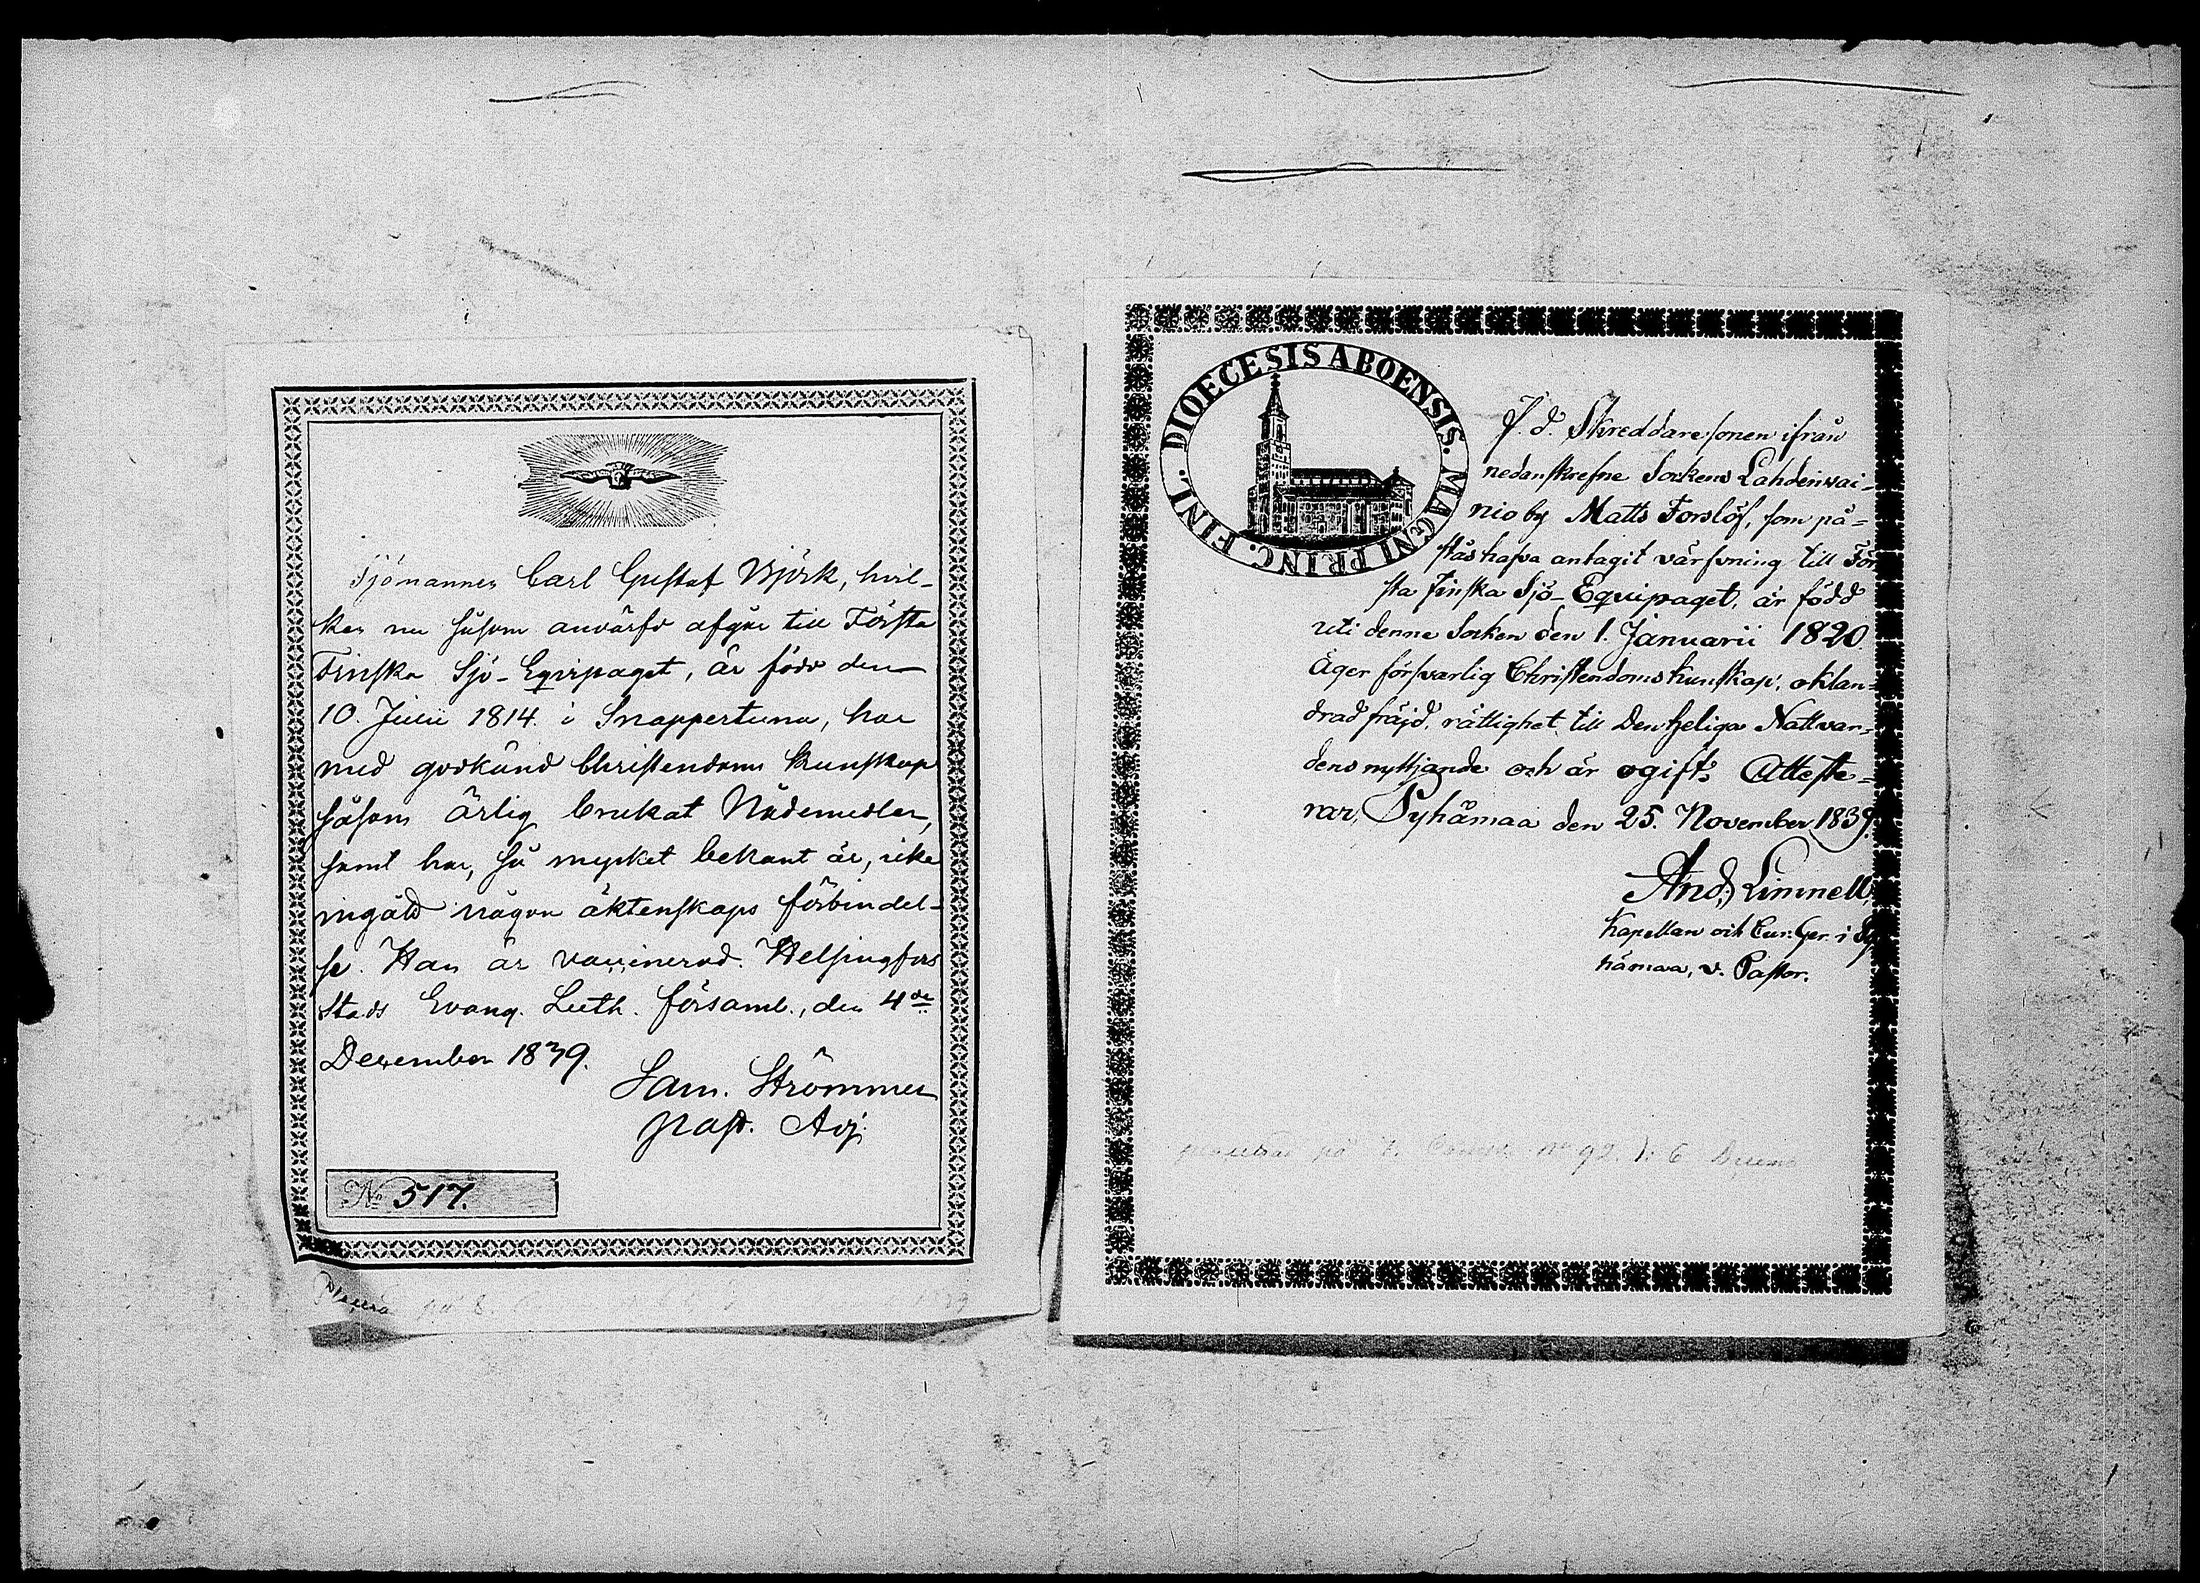 Sjömannen Carl Gustaf Björk, hvil-
ken nu såsom anvärfd afgår till Första
Finska Sjö-Equipaget, är född den
10. Junii 1814. i Snappertuna, har
med godkänd Christendoms Kunskap
såsom ärlig brukat Nådemedlen,
samt har, så mycket bekant är, icke
ingått någon äktenskaps förbindel-
se. Han är vaccinerad. Helsingfors
Stads Evang. Luth. församl., den 4de
December 1839.
Sam. Strömmer
Past. Adj.
No 517.
på 8.
DIOECESIS ABOENSIS. MAGNI PRINC. FINL.
F. d. Skreddaresonen ifrån
nedanskrefne Sockens Lahdenwai-
nio by Matts Forslöf, som på-
stås hafva antagit värfvning till För
sta finska Sjö-Equipaget, är född
uti denne Socken den 1. Januarii 1820.
Äger försvarlig Christendomskunskap, oklan-
drad fräjd, rättighet till Den heliga Nattvar-
dens nyttjande och är ogift. Atteste-
rar, Pyhämaa den 25. November 1839.
And. Limnell,
Kapellan och Cur. Ger. i Py
hämaa, v. Pastor.
på 7. No 92. d. 6 Decemb